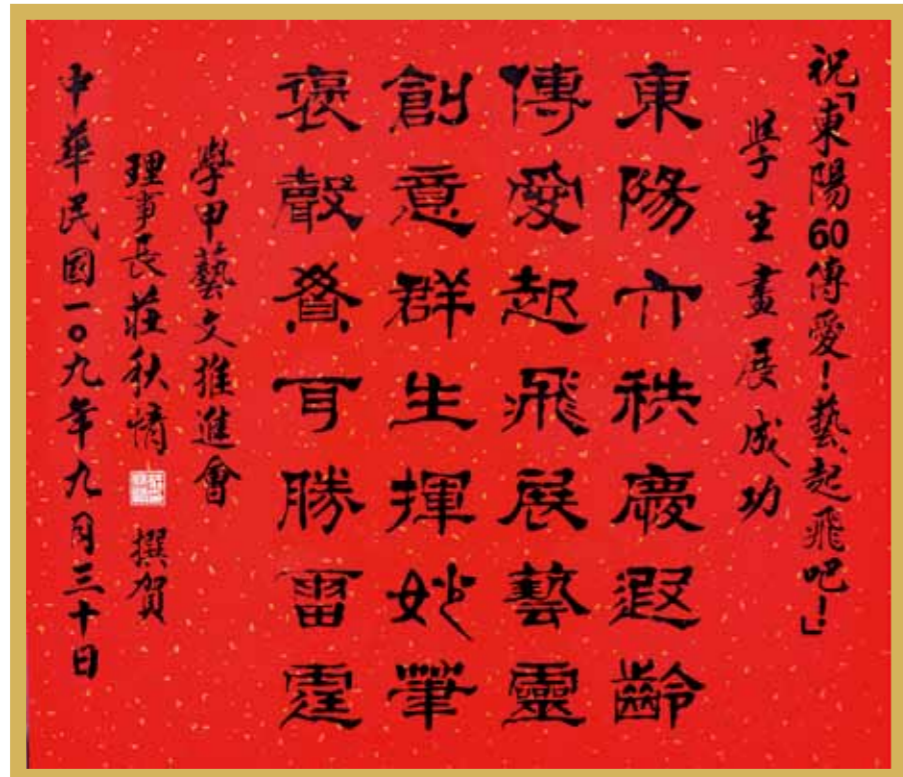 祝「東陽60傳愛!藝起飛吧!」
學生畫展成功
東陽六秩慶遐齡
傳愛起飛展藝靈
創意群生揮妙筆
褒聲貫耳勝雷霆
學甲藝文推進會
理事長莊秋情 撰賀
中華民國一○九年九月三十日